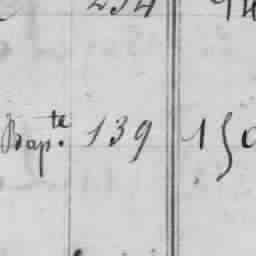 234
Bap.te 139 150